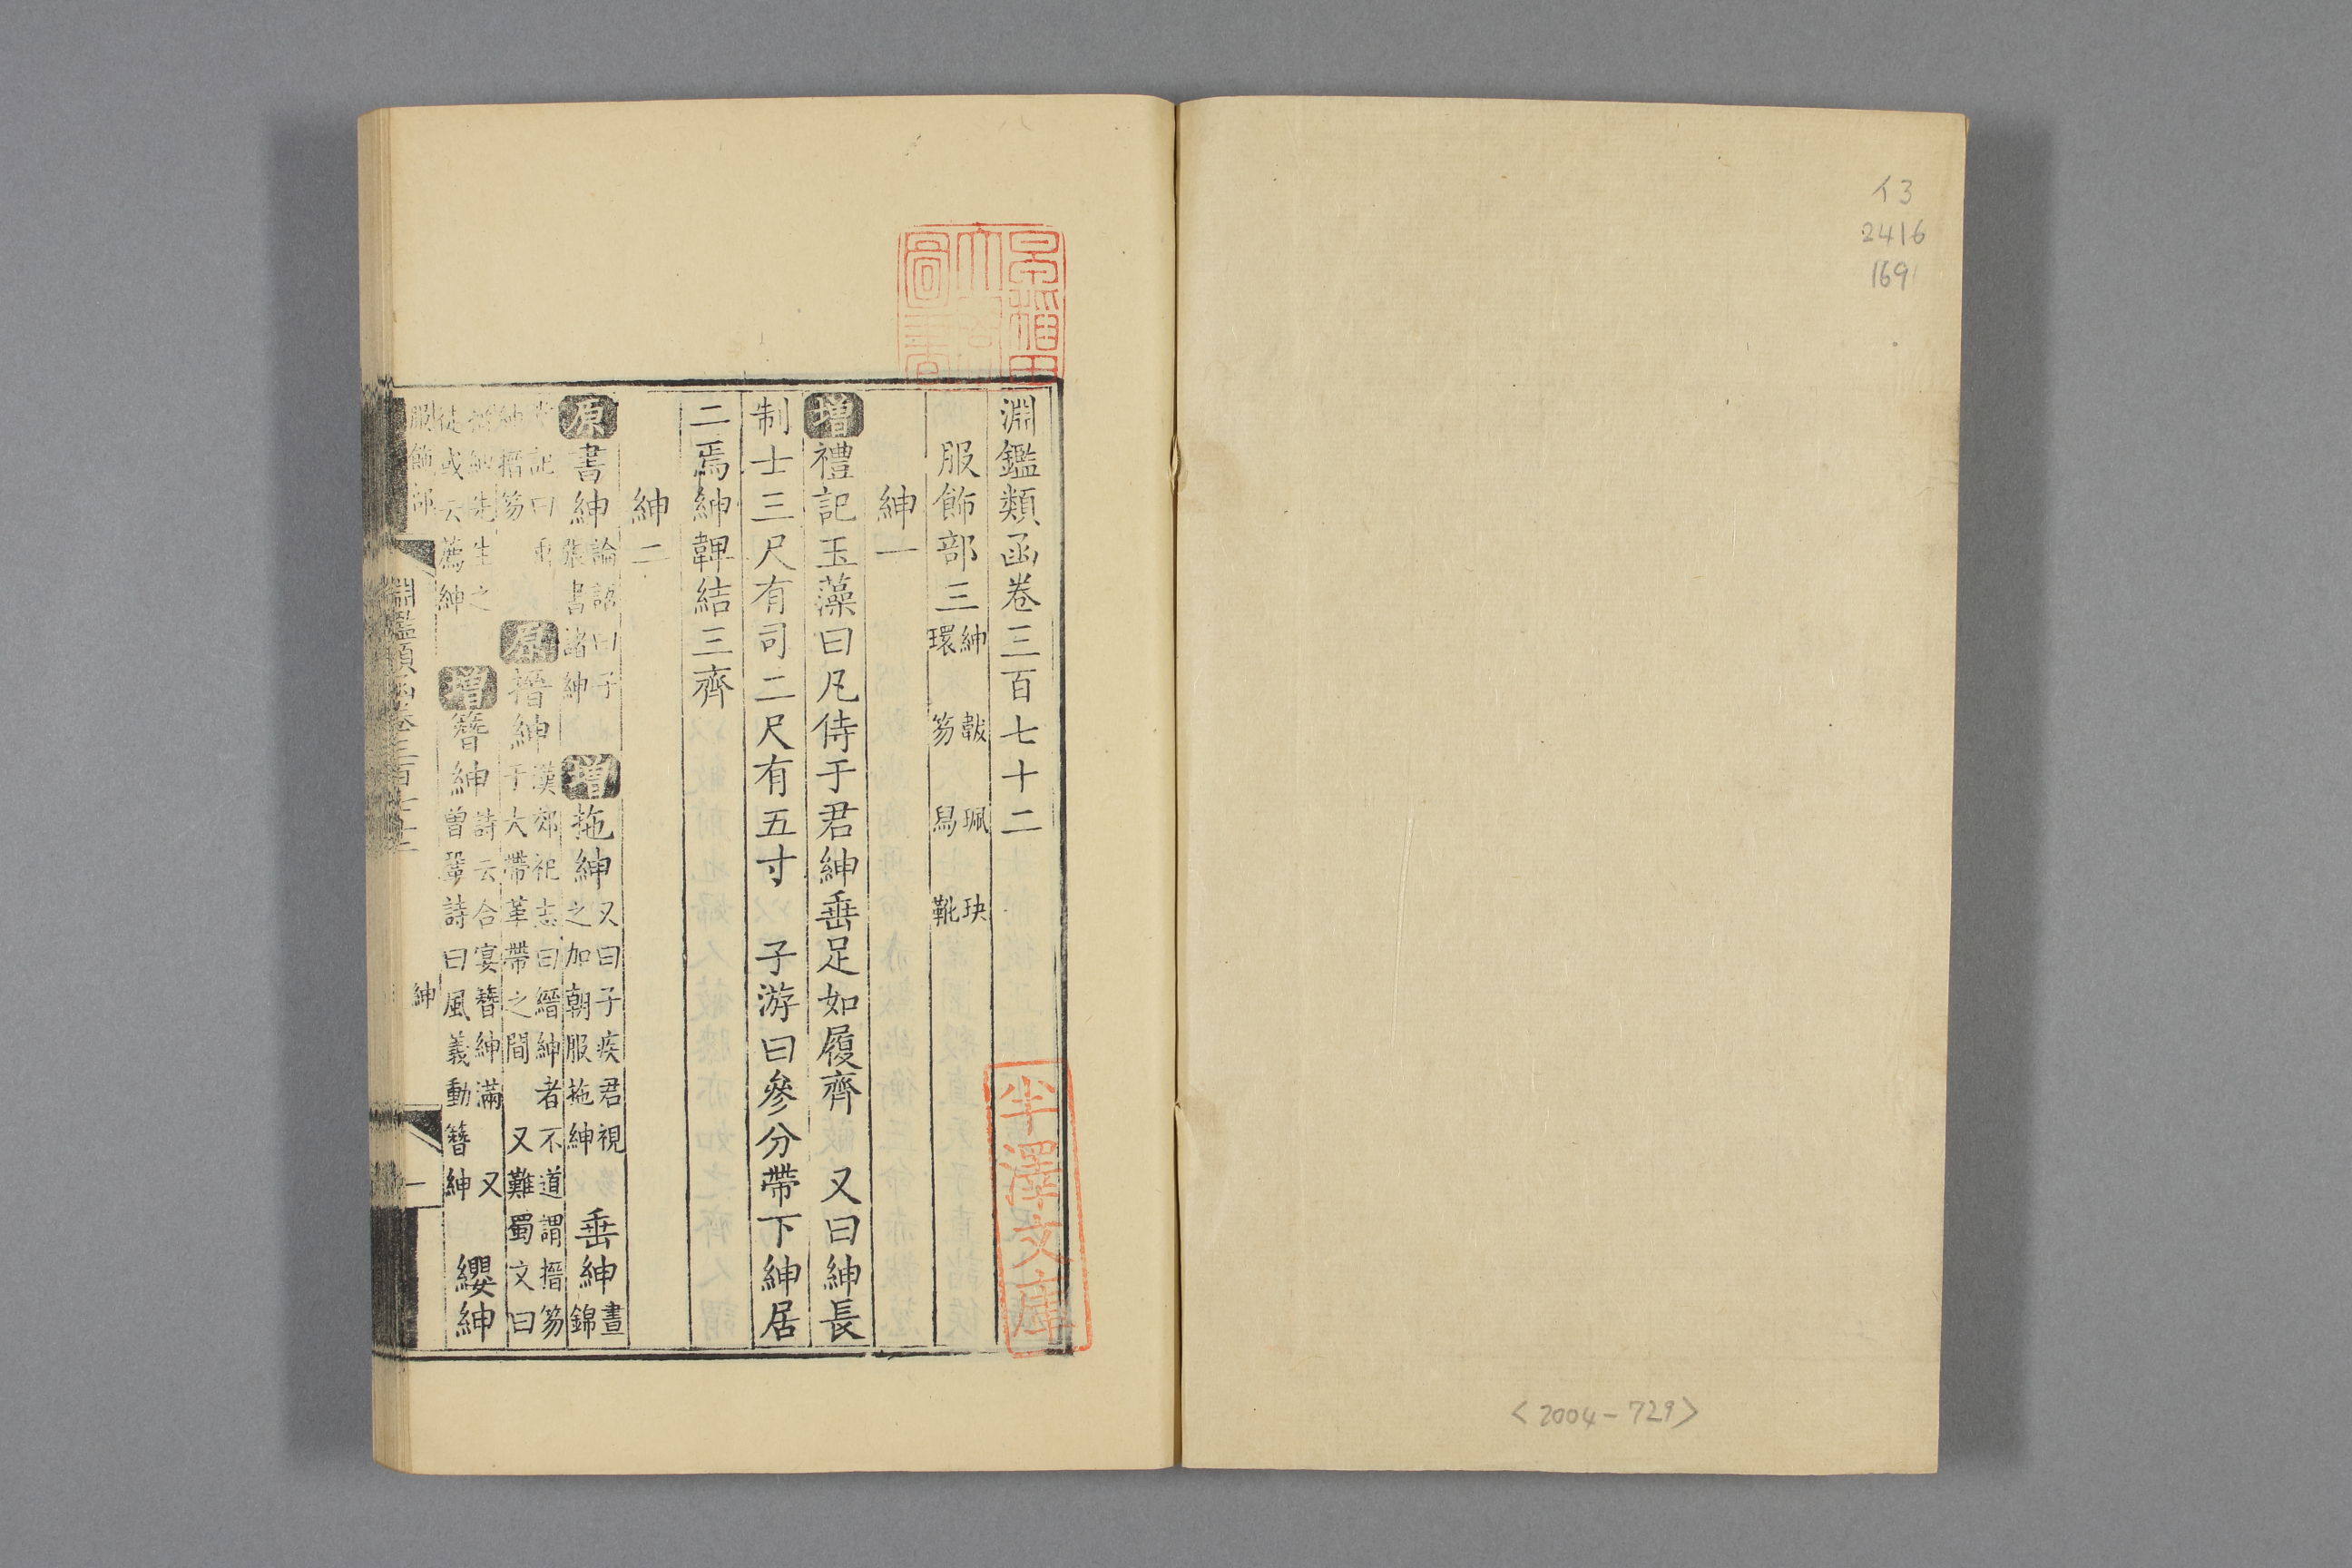 イ3
2416
169
<2004-729>
早稲田大學圖書
半澤文庫
淵鑑類函卷三百七十二
服飾部三 紳 韍 珮 玦 環 笏 舄 靴
紳一
增禮記玉藻曰凡侍于君紳垂足如履齊 又曰紳長
制士三尺有司二尺有五寸 子游曰參分帶下紳居
二焉紳韠結三齊
紳二
原書紳論語曰子張書諸紳 增拖紳又曰子疾君視之加朝服拖紳 垂紳畫錦
記曰垂紳搢笏 原搢紳漢郊祀志曰縉紳者不道謂搢笏于大帶革帶之間 又難蜀文曰
紳先生之徒或云薦紳 增簪紳詩云合宴簪紳滿 又曾鞏詩曰風義動簪紳 纓紳
服飾部
淵鑑類函卷三百七十二
紳
一